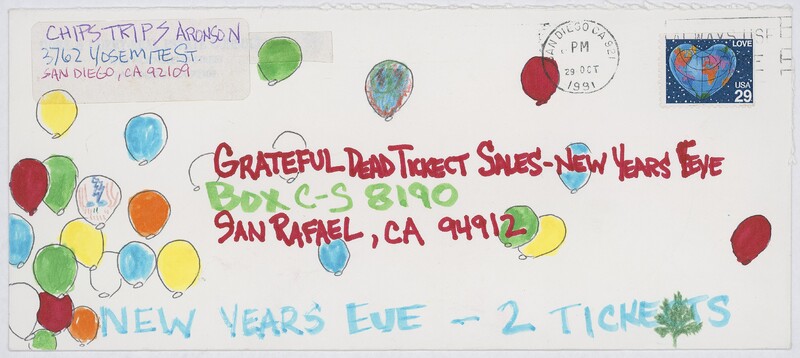 CHIPSTRIPS ARONSON
3762 YOSEMITE ST.
SAN DIEGO, CA 92109
SAN DIEGO CA 921
PM
29 OCT
1991
ALWAYS USE
LOVE
USA
29
GRATEFUL DEAD TICKECT SALES-NEW YEARS EVE
BOX C-S 8190
SAN RAFAEL, CA 94912
NEW YEARS EVE - 2 TICKETS